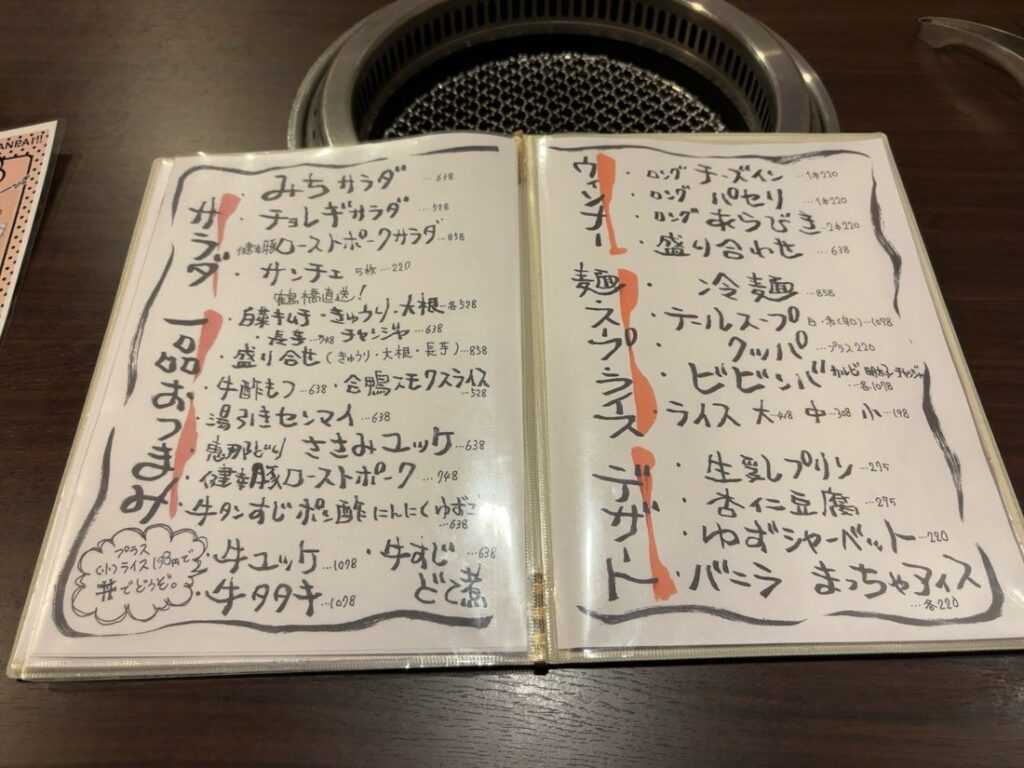 ANPAI!!
サラダ
・みちサラダ…638
・チョレギサラダ…528
・健康豚ローストポークサラダ…858
・サンチェ 5枚…220
一品おつまみ
鶴橋直送!
・白菜キムチ・きゅうり・大根…各528
・長芋…748 チャンジャ…638
・盛り合せ(きゅうり・大根・長芋)…858
・牛酢もつ…638・合鴨スモクスライス…528
・湯引きセンマイ…638
・恵那どり ささみユッケ…638
・健康豚ローストポーク…748
・牛タンすじポン酢 にんにくゆずこ…638
・牛ユッケ…1078
・牛すじどて煮…638
・牛タタキ…1078
プラス
(小)ライス198円で
丼でどうぞ。
ウィンナー
・ロング チーズイン…1本220
・ロング パセリ…1本220
・ロング あらびき…2本220
・盛り合わせ…638
麺・スープ・ライス
・冷麺…858
・テールスープ 白・赤(辛口)…1098
・クッパ…プラス220
・ビビンバ カルビ 明太子 チャンジャ…各1078
・ライス 大…418 中…308 小…198
デザート
・生乳プリン…275
・杏仁豆腐…275
・ゆずシャーベット…220
・バニラ まっちゃアイス…各220